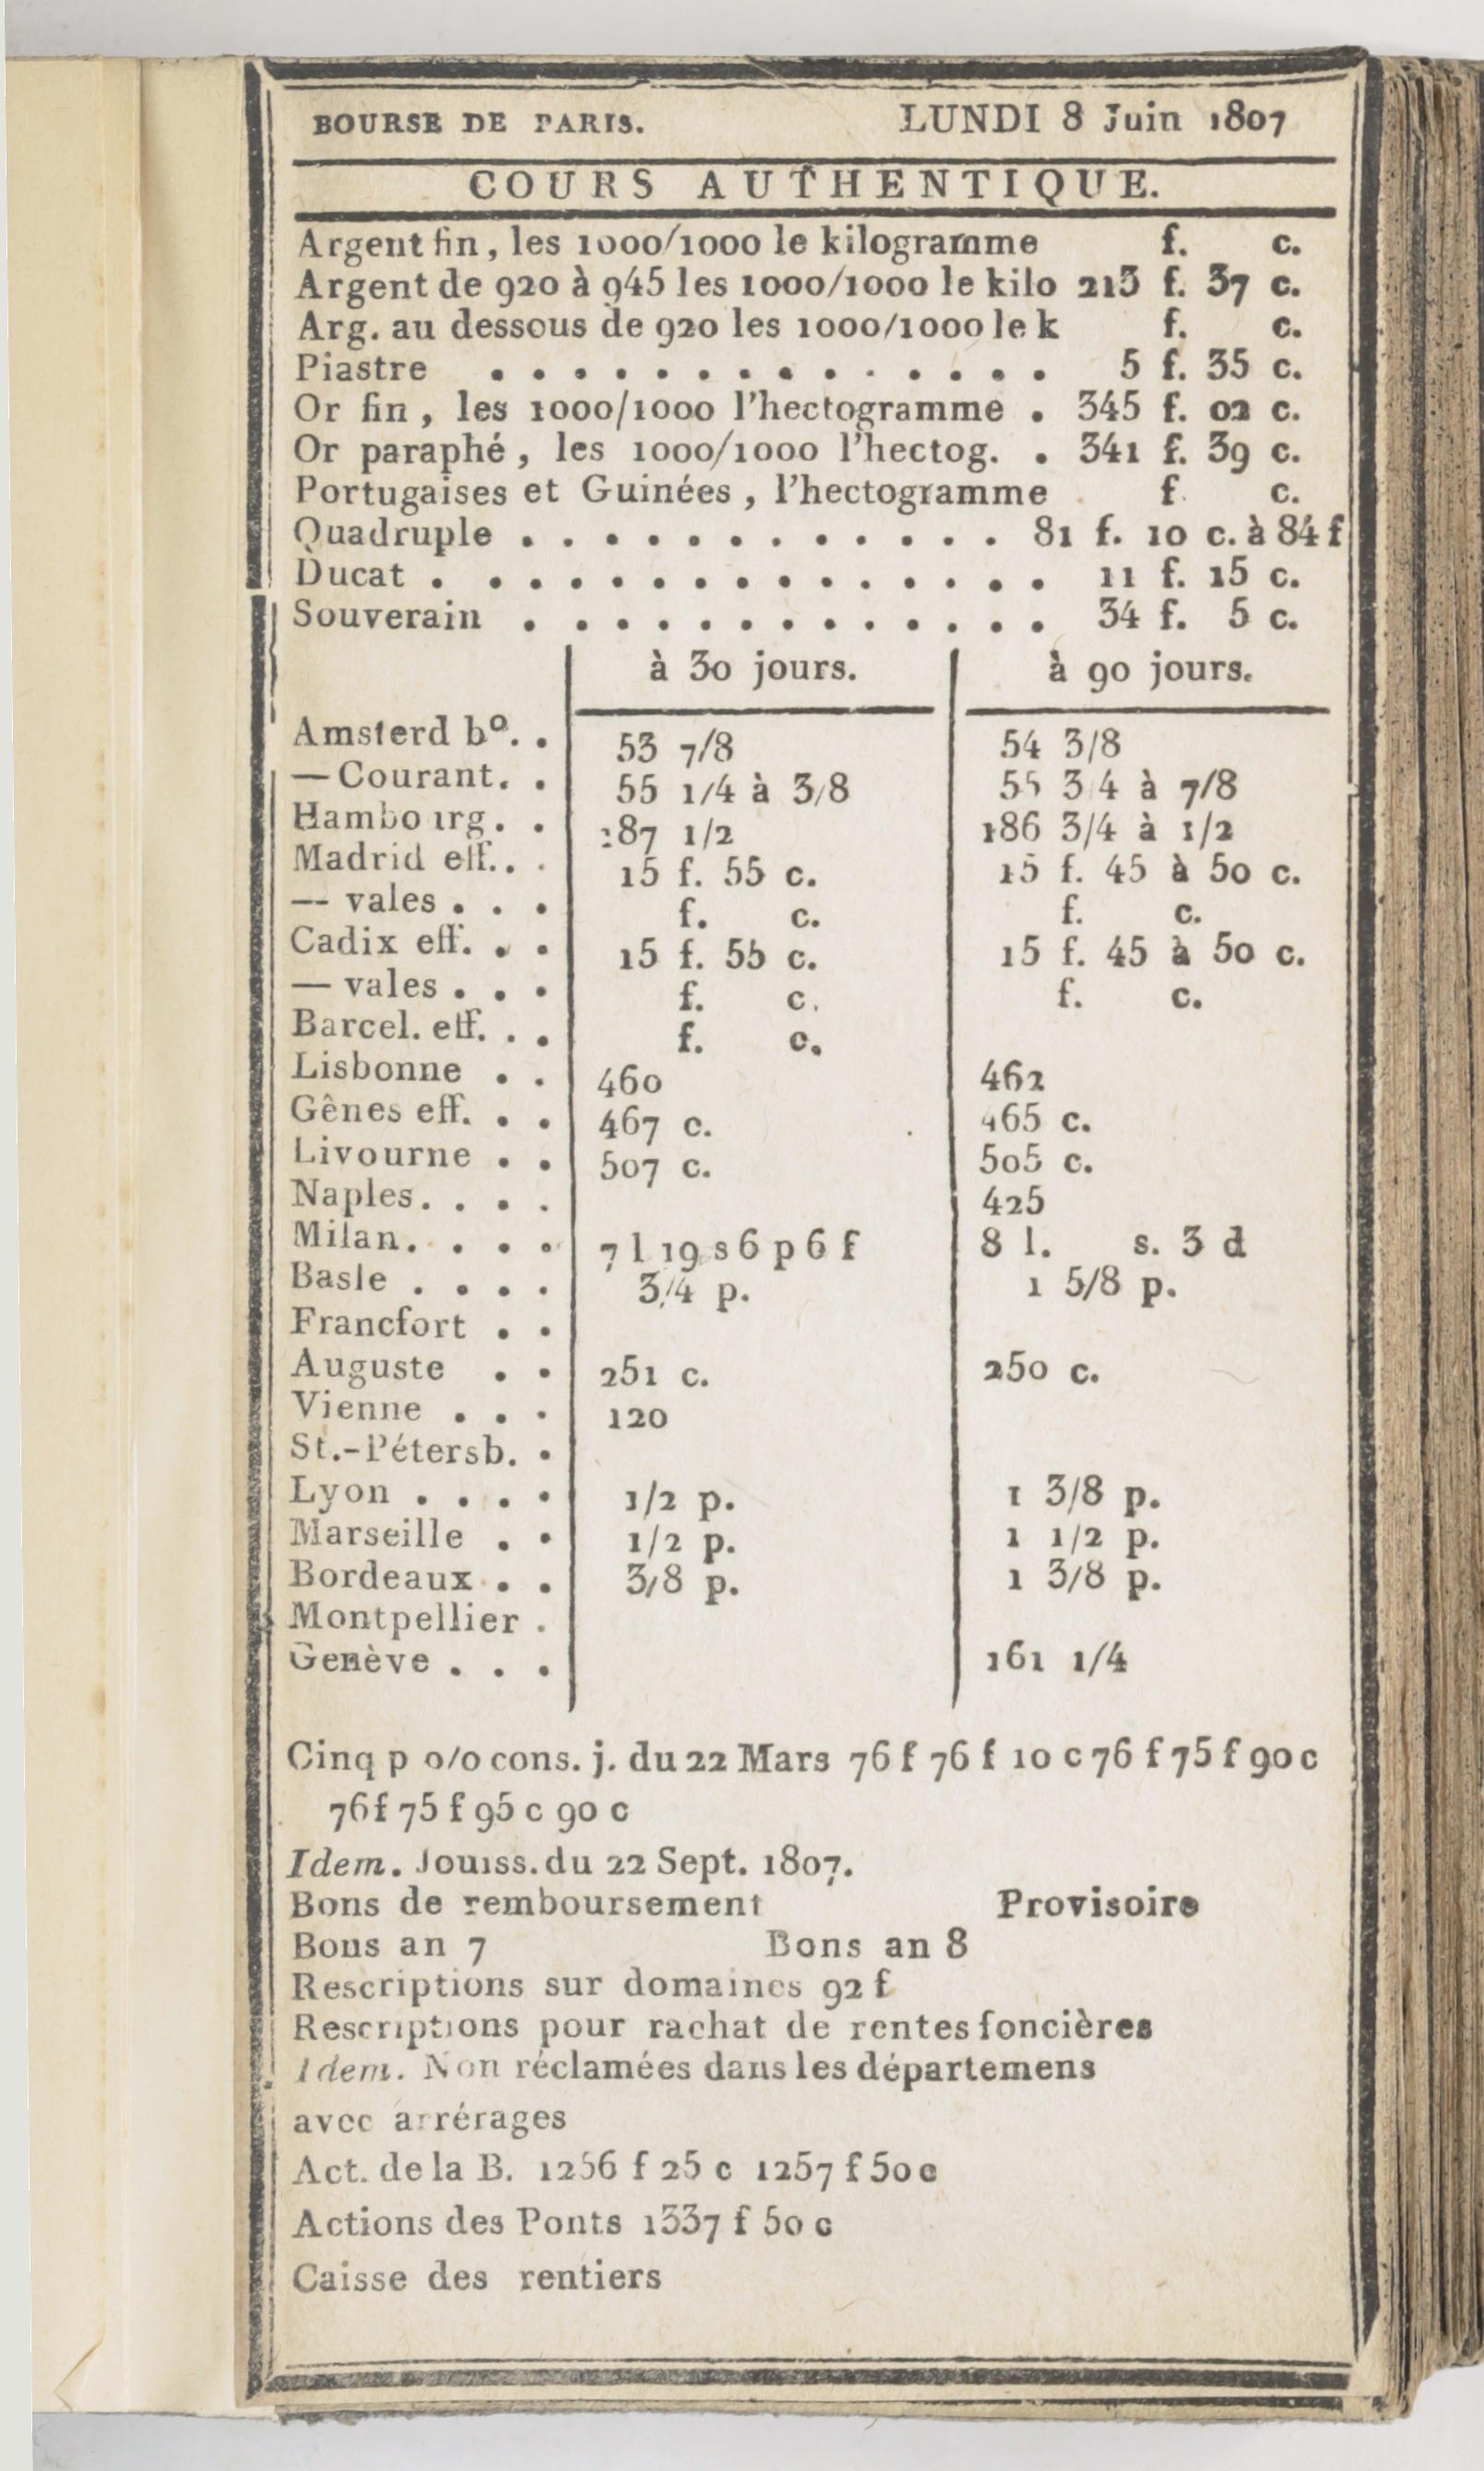 BOURSE DE PARIS. LUNDI 8 Juin 1807
COURS AUTHENTIQUE.
Argent fin, les 1000/1000 le kilogramme f. c.
Argent de 920 à 945 les 1000/1000 le kilo 213 f. 37 c.
Arg. au dessous de 920 les 1000/1000 le k f. c.
Piastre . . . . . . . . . . . . . . 5 f. 35 c.
Or fin, les 1000/1000 l'hectogramme . 345 f. 02 c.
Or paraphé, les 1000/1000 l'hectog. . 341 f. 39 c.
Portugaises et Guinées, l'hectogramme f. c.
Quadruple . . . . . . . . . . . . 81 f. 10 c. à 84 f
Ducat . . . . . . . . . . . . . . . 11 f. 15 c.
Souverain . . . . . . . . . . . . . 34 f. 5 c.
à 30 jours. à 90 jours.
Amsterd bº. . 53 7/8 54 3/8
— Courant. . 55 1/4 à 3/8 55 3/4 à 7/8
Hambourg. . 187 1/2 186 3/4 à 1/2
Madrid eff. . . 15 f. 55 c. 15 f. 45 à 50 c.
— vales . . . f. c. f. c.
Cadix eff. . . 15 f. 55 c. 15 f. 45 à 50 c.
— vales . . . f. c. f. c.
Barcel. eff. . . f. c.
Lisbonne . . 460 462
Gênes eff. . . 467 c. 465 c.
Livourne . . 507 c. 505 c.
Naples. . . . 425
Milan. . . . 7 l 19 s 6 p 6 f 8 l. s. 3 d
Basle . . . . 3/4 p. 1 5/8 p.
Francfort . .
Auguste . . 251 c. 250 c.
Vienne . . . 120
St.-Pétersb. .
Lyon . . . . 1/2 p. 1 3/8 p.
Marseille . . 1/2 p. 1 1/2 p.
Bordeaux . . 3/8 p. 1 3/8 p.
Montpellier .
Genève . . . 161 1/4
Cinq p o/o cons. j. du 22 Mars 76 f 76 f 10 c 76 f 75 f 90 c
76 f 75 f 95 c 90 c
Idem. Jouiss. du 22 Sept. 1807.
Bons de remboursement Provisoire
Bons an 7 Bons an 8
Rescriptions sur domaines 92 f
Rescriptions pour rachat de rentes foncières
Idem. Non réclamées dans les départemens
avec arrérages
Act. de la B. 1256 f 25 c 1257 f 50 c
Actions des Ponts 1337 f 50 c
Caisse des rentiers